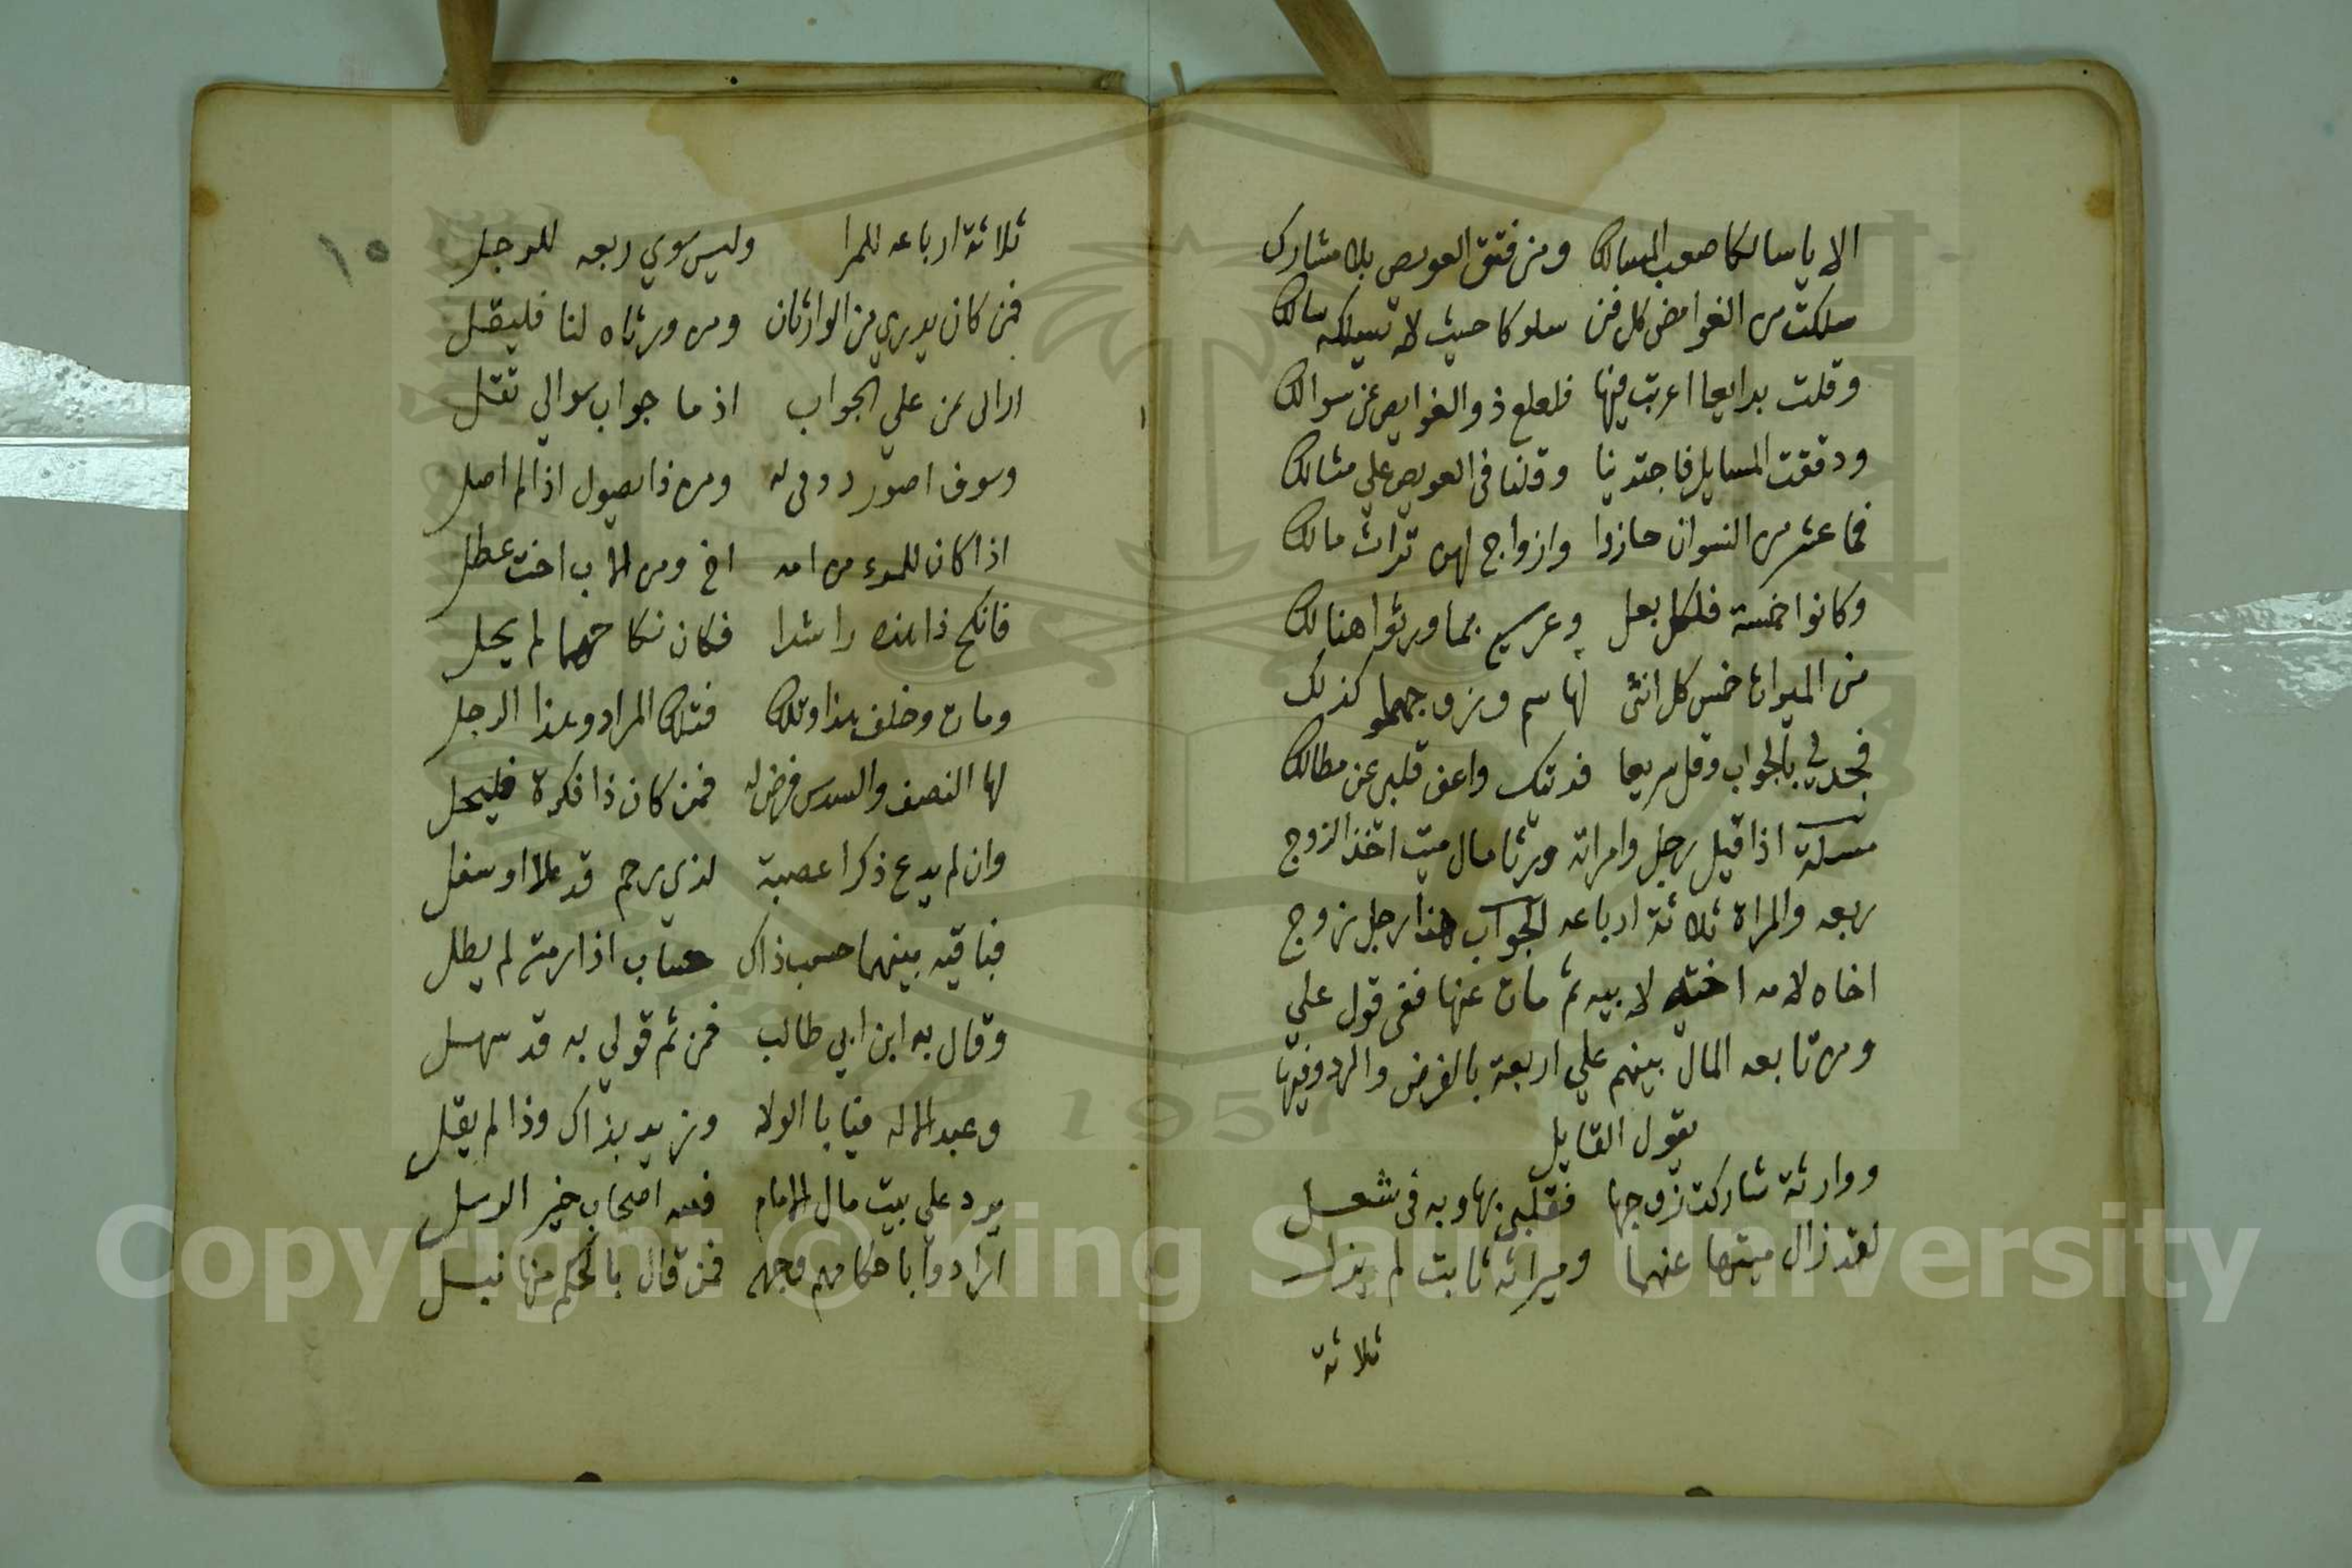 الا يا سالكا صعب المسالك ومن فتق العويص بلا مشارك
سلكت من الغوامض كل فن سلوكا حيث لا تسلكه سالك
وقلت بدايعا اعربت فيها فلعلع ذو الغوايص عن سوالك
ودققت المسايل فاجتدينا وقلنا في العويص علي مثالك
فما عشر من النسوان حازوا وازواج لهن تراث مالك
وكانوا خمسة فلكل بعل وعرس بما ورثوا هنالك
من الميراث خمس كل انثى لها سم وزوجها كذلك
فجد لي بالجواب وقل سريعا فدتك واعف قلبي عن مطالك
مسلة اذا قيل رجل وامراته ورثا مال ميت اخذ الزوج
ربعه والمراة ثلاثة ارباعه الجواب هذا رجل زوج
اخاه لامه اخته لابيه ثم مات عنها ففي قول علي
ومن تابعه المال بينهم علي اربعة بالفرض والرد وفيها
يقول القايل
ووارثة شاركت زوجها فقلبي بها وبه في شغل
لقد زال ميتها عنهما وميراثه ثابت لم يزل
ثلاثة
١٥
ثلاثة ارباعه للمرا وليس سوي ربعه للرجل
فمن كان يدري من الوارثان ومن ورثاه لنا فليقل
من علي الجواب اذ ما جواب سوالي ثقل
وسوف اصور له ومن ذا يصول اذا لم اصل
اذا كان للمرء من امه اخ ومن الاب اخت عطل
فانكح ذا هذه راشدا فكان نكاحهما لم يحل
ومات وخلف هذا وتلك فتلك المراد وهذا الرجل
لها النصف والسدس فرض له فمن كان ذا فكرة فليحل
وان لم يدع ذكرا عصبة لذي رحم قد علا او سفل
فباقيه بينهما حسب ذاك حساب اذا رمته لم يطل
وقال به ابن ابي طالب فمن ثم قولي به قد سهل
وعبد الاله فيابا الولاه وزيد بذاك وذا لم يقل
يرد علي بيت مال الامام اصحاب خير الرسل
ارادوا باحكامهم وجهه فمن قال بالحكم منها نبل
Copyright © King Saud University
1957